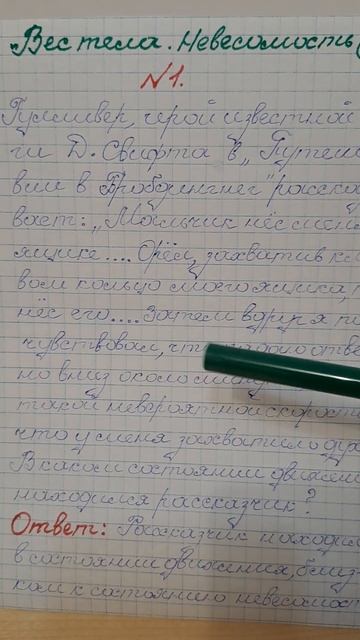 Вес тела. Невесомость (
№1.
Гулливер, герой известной
ги Д. Свифта в „Путеше
вии в Бробдингнег" расска
вает: „Мальчик нёс меня
ящике.... Орёл, захватив к
вом кольцо моего ящика,
нёс его.... Затем вдруг я п
чувствовал, что отве
но вниз около
такой невероятной скорост
что у меня захватило ду
В каком состоянии движен
находился рассказчик?
Ответ: Рассказчик находил
в состоянии движения, близ
ком к состоянию невесомост